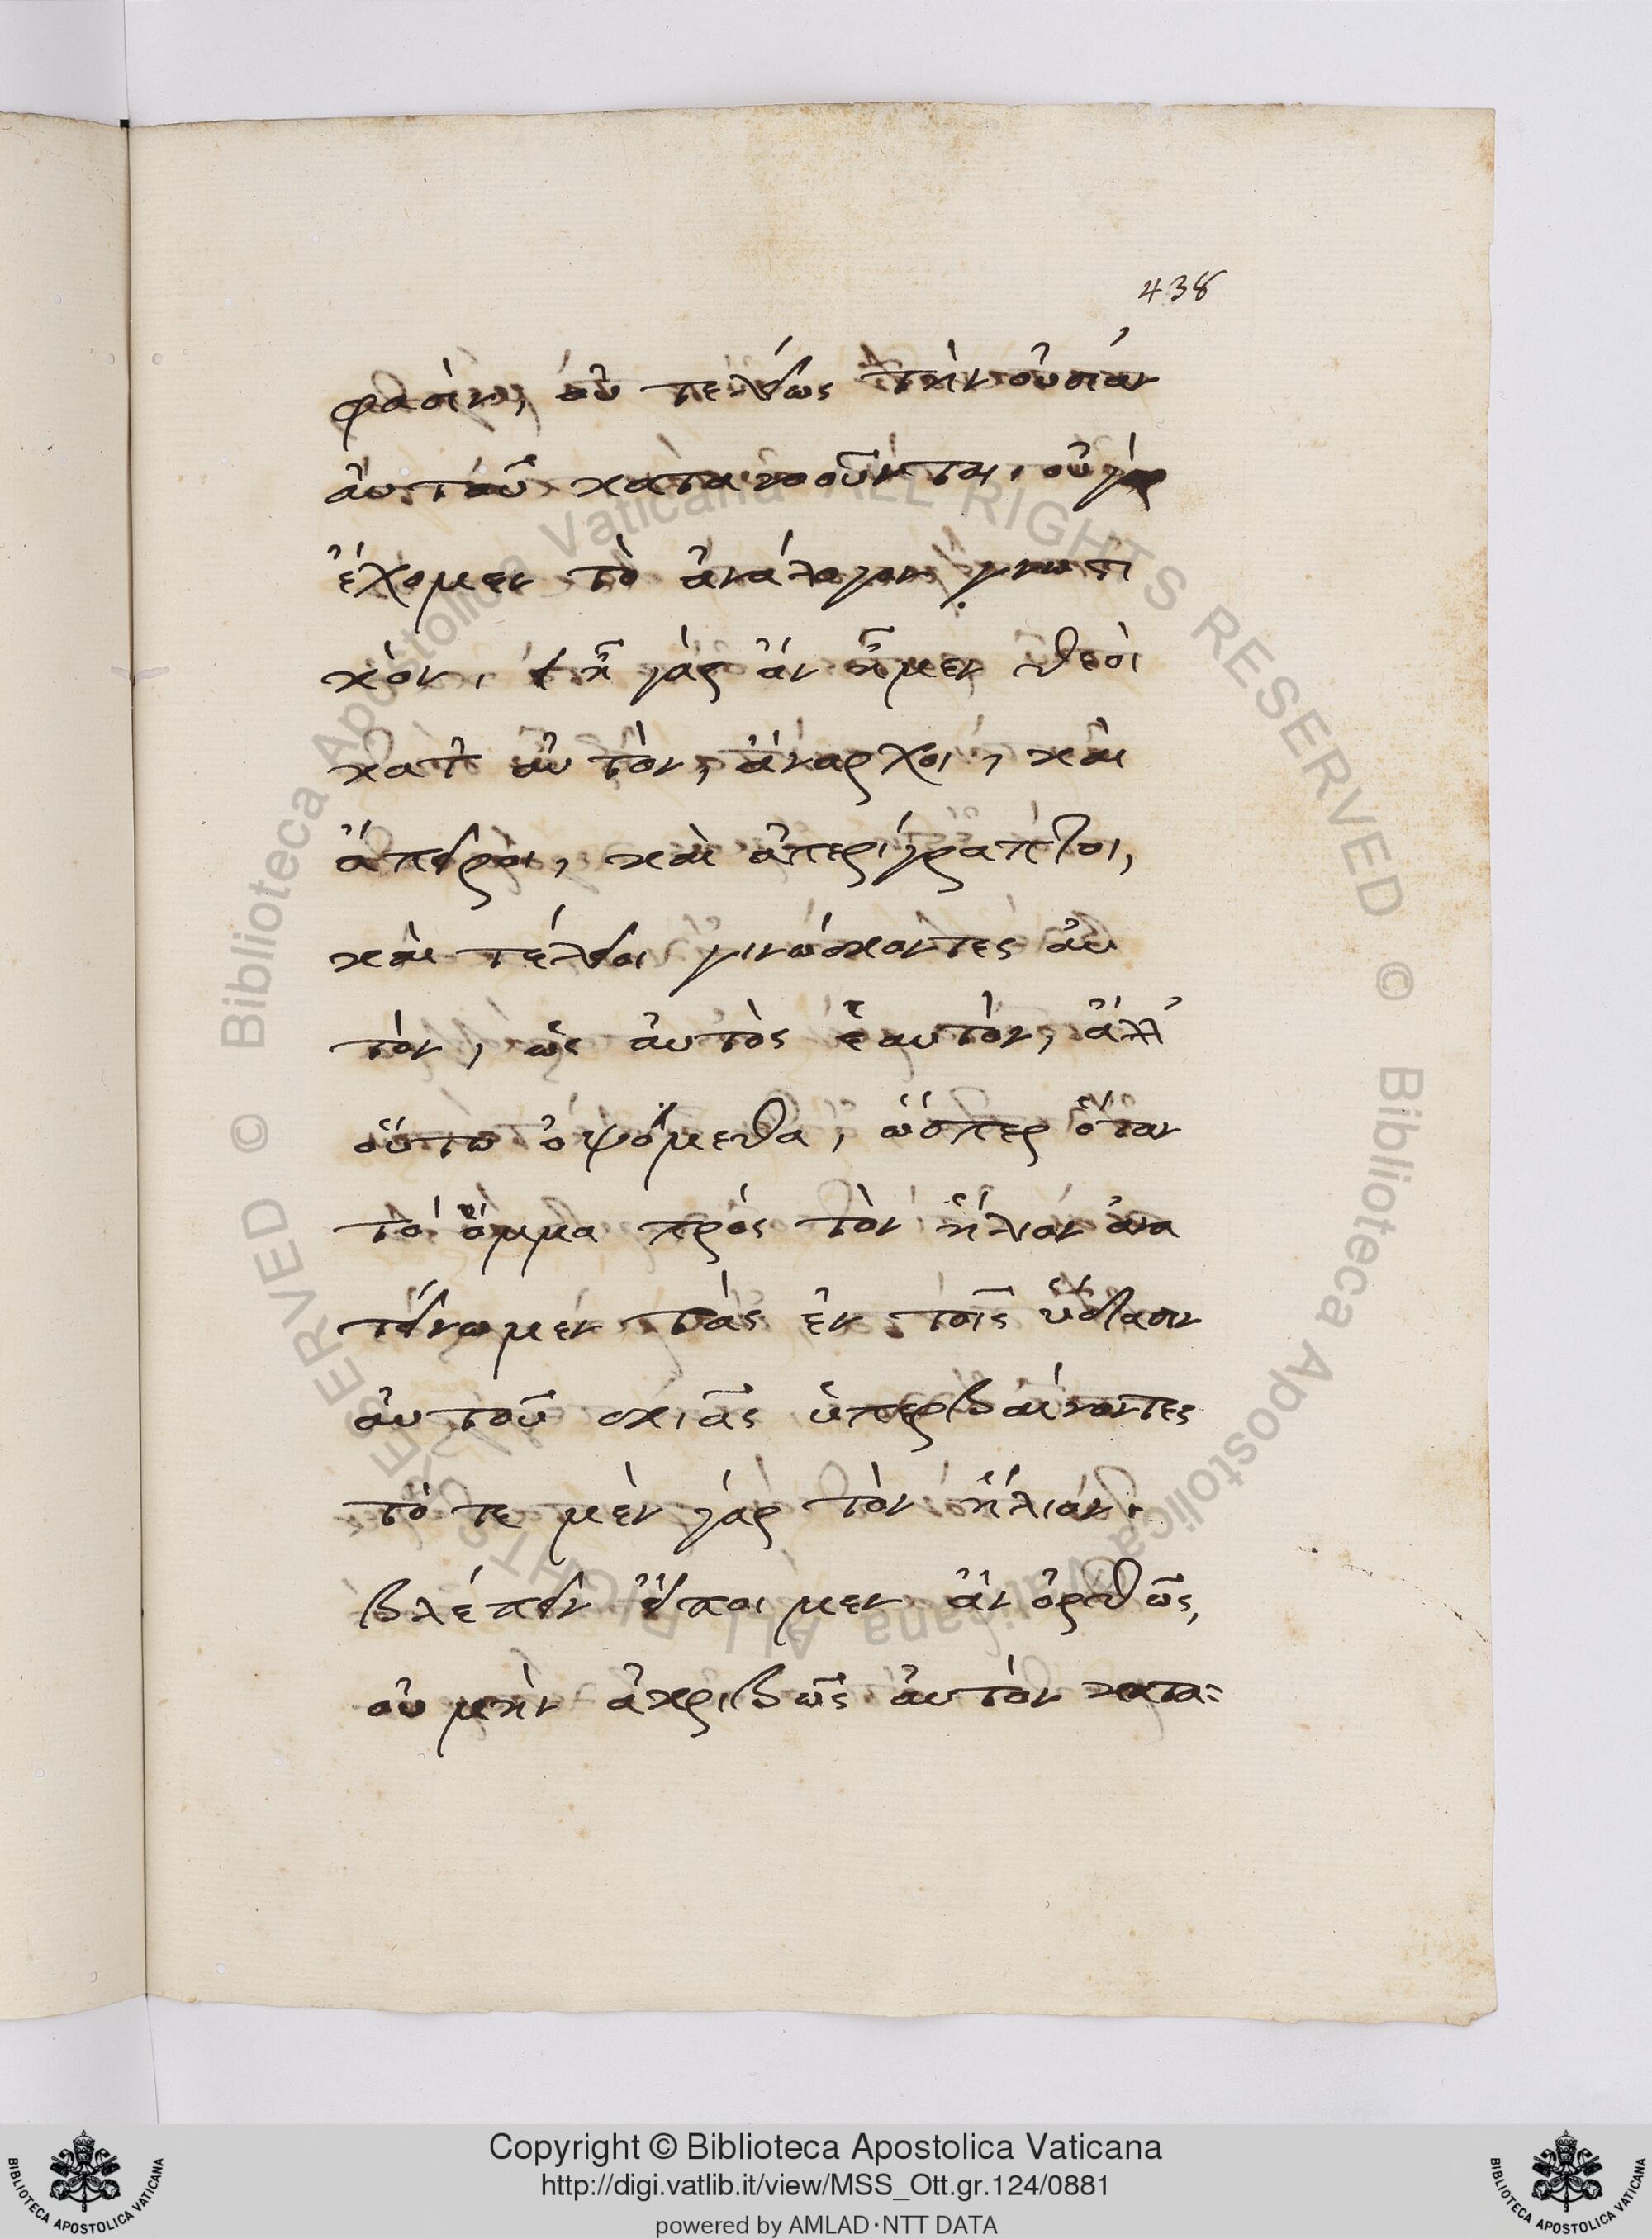 438
φασὶν, οὐ τελείως τὴν οὐσίαν
αὐτοῦ κατανοοῦνται, οὐ γὰρ
ἔχομεν τὸ ἀνάλογον γνωστι
κόν, ἦ γὰρ ἂν ἦμεν θεοὶ
κατ' αὐτὸν, ἄναρχοι, καὶ
ἄπειροι, καὶ ἀπερίγραπτοι,
καὶ τέλειοι γινώσκοντες αὐ
τὸν, ὡς αὐτὸς ἑαυτὸν, ἀλλ'
οὕτω ὀψόμεθα, ὥσπερ ὅταν
τὸ ὄμμα πρὸς τὸν ἥλιον ἀνα
τείνωμεν τὰς ἐν τοῖς ὕδασιν
αὐτοῦ σκιᾶς ὑπερβαίνοντες
τότε μὲν γὰρ τὸν ἥλιον.
βλέπειν εἴποιμεν ἂν ὀρθῶς,
οὐ μὴν ἀκριβῶς αὐτὸν κατα=
© Biblioteca Apostolica Vaticana ALL RIGHTS RESERVED © Biblioteca Apostolica Vaticana ALL RIGHTS RESERVED
BIBLIOTECA APOSTOLICA VATICANA
Copyright © Biblioteca Apostolica Vaticana
http://digi.vatlib.it/view/MSS_Ott.gr.124/0881
powered by AMLAD·NTT DATA
BIBLIOTECA APOSTOLICA VATICANA